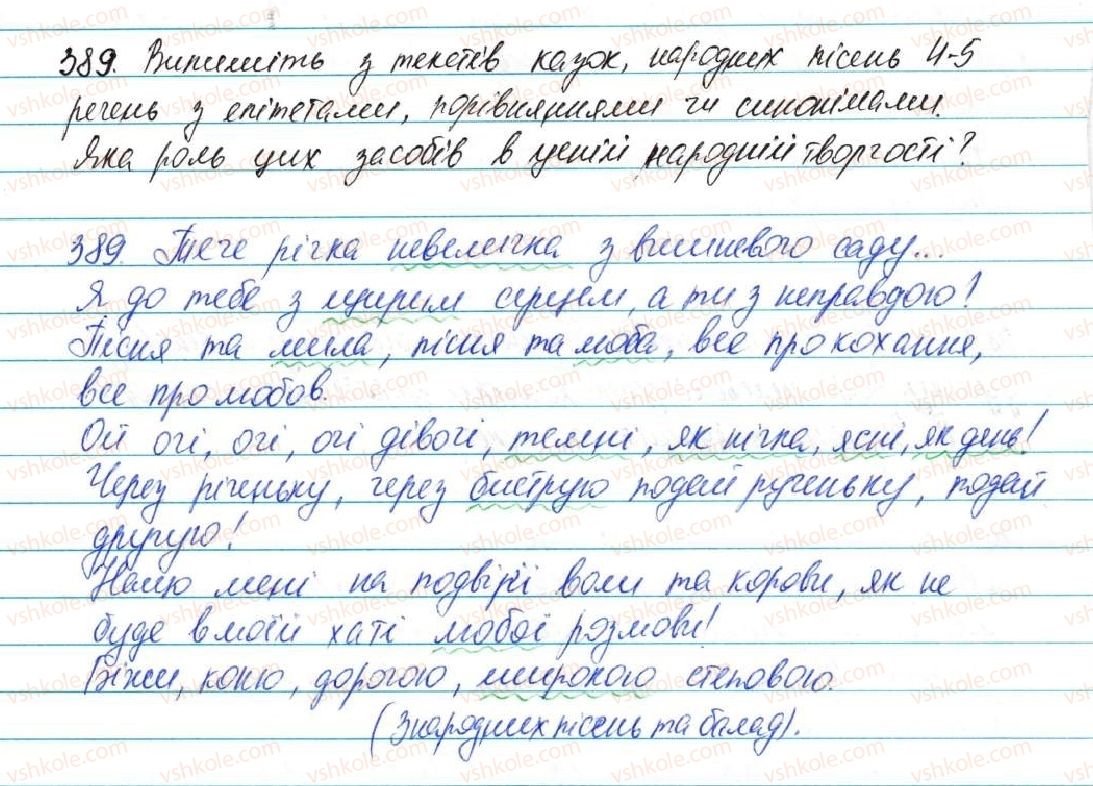 389. Випишіть з текстів казок, народних пісень 4-5
речень з епітетами, порівняннями чи синонімами.
Яка роль цих засобів в усній народній творчості?
389. Тече річка невеличка з вишневого саду...
Я до тебе з щирим серцем, а ти з неправдою!
Пісня та мила, пісня та люба, все про кохання,
все про любов.
Ой очі, очі, очі дівочі, темні, як нічка, ясні, як день!
Через річеньку, через быструю подай рученьку, подай
другую!
Нащо мені на подвір'ї воли та корови, як не
буде в моїй хаті любої розмови!
Біжи, коню, дорогою, широкою степовою.
(З народних пісень та балад).